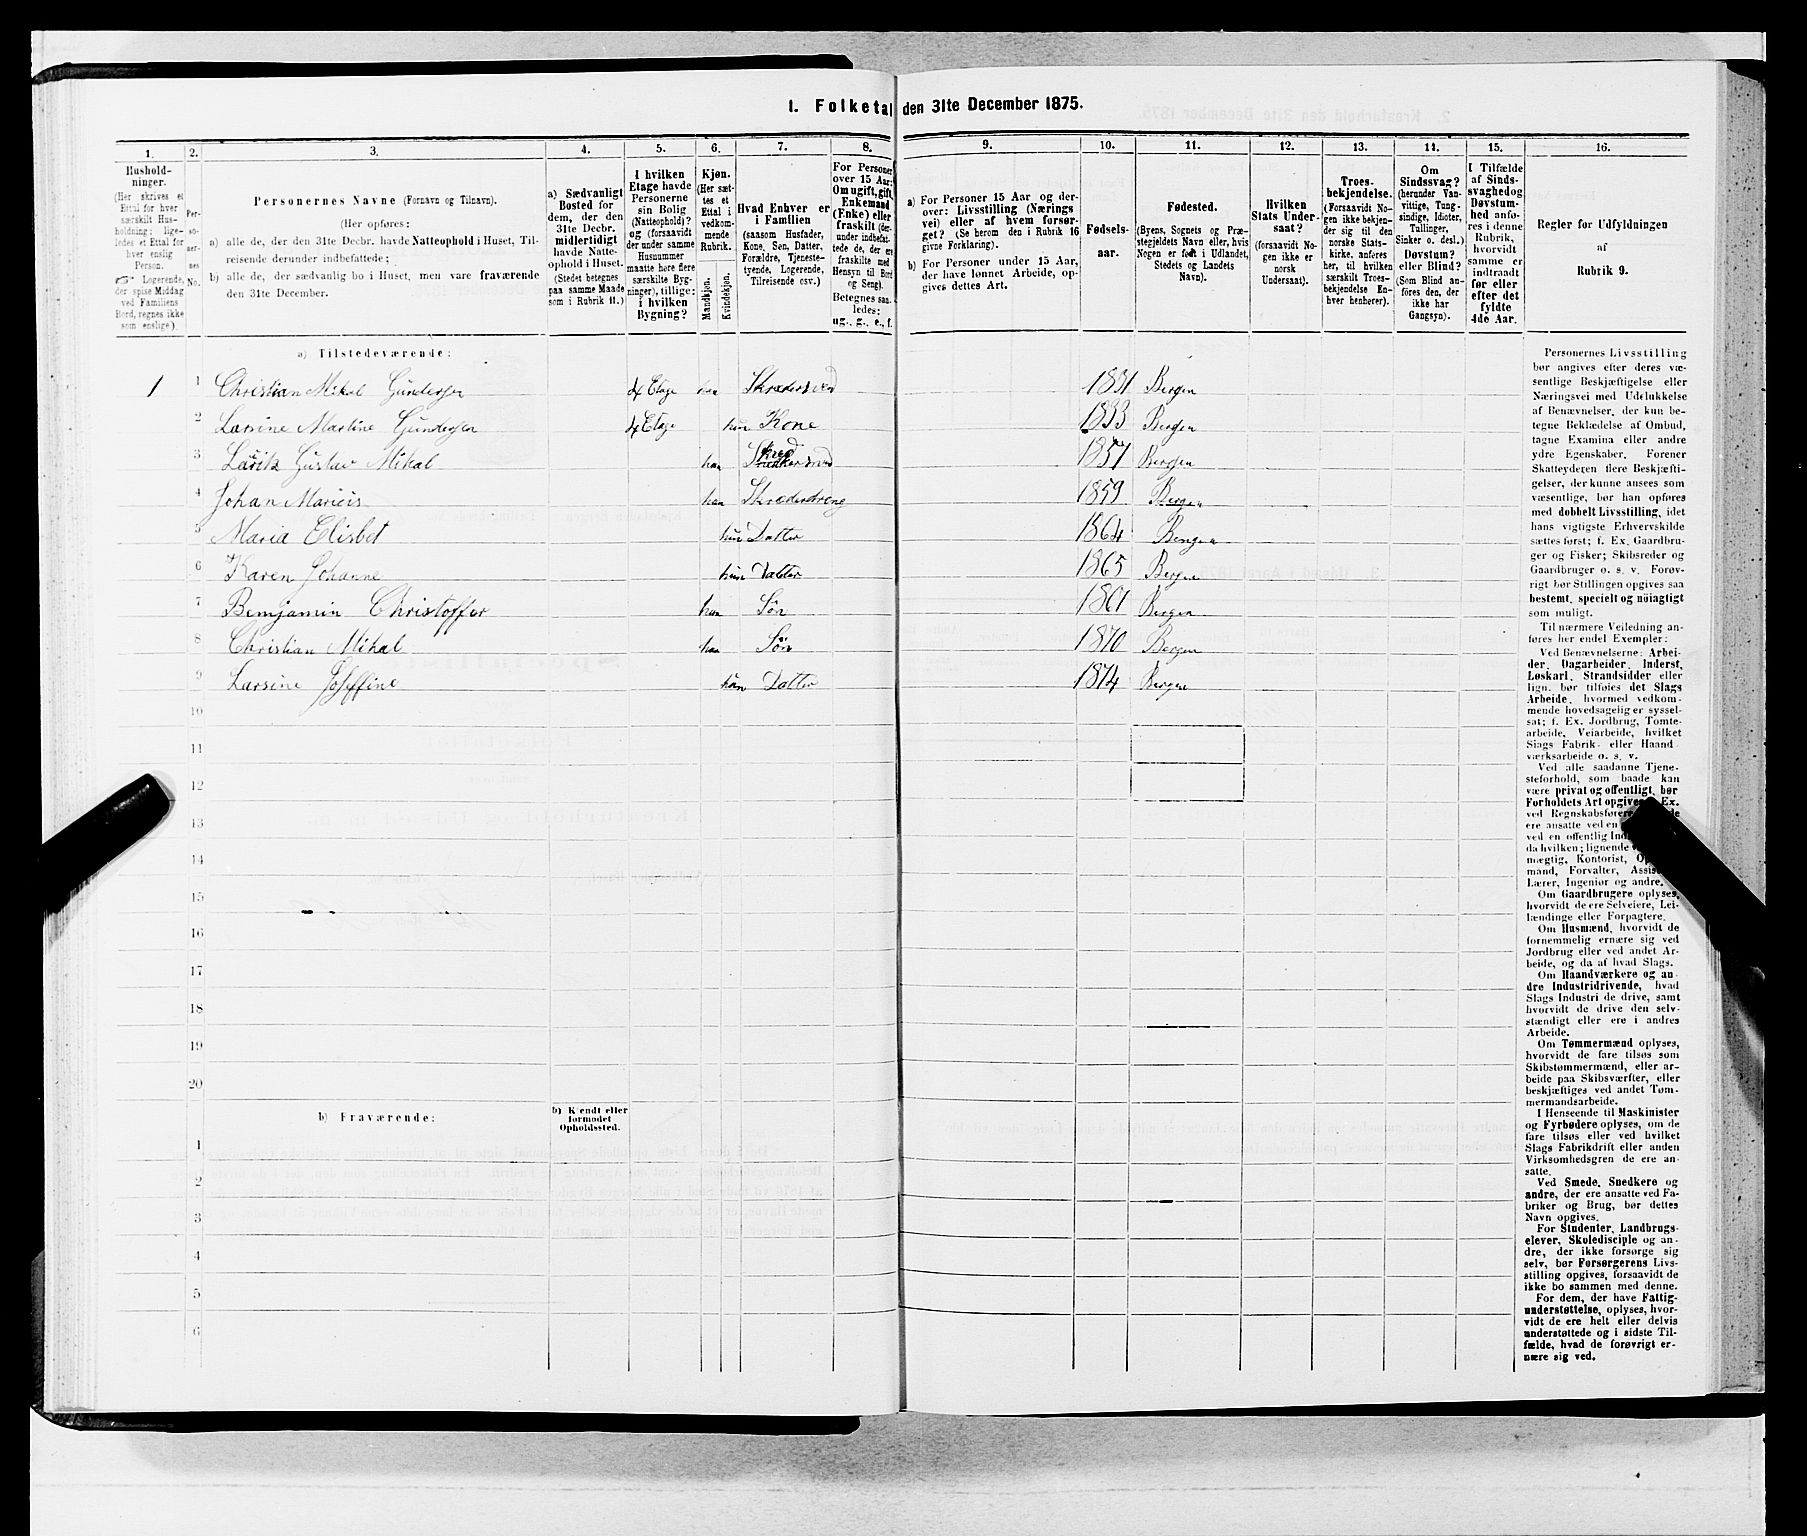 1. Folketal den 31te December 1875.
1.
Hushold-
ninger.
(Her skrives et
Ettal for hver
særskilt Hus-
holdning; lige-
ledes et Ettal for
hver enslig
Person.
Logerende,
der spise Middag
ved Familiens
Bord, regnes ikke
som enslige).
2.
Per-
so-
ner-
nes
No.
3.
Personernes Navne (Fornavn og Tilnavn).
(Her opføres:
a) alle de, der den 31te Decbr. havde Natteophold i Huset, Til-
reisende derunder indbefattede;
b) alle de, der sædvanlig bo i Huset, men vare fraværende
den 31te December.
4.
a) Sædvanligt
Bosted for
dem, der den
31te Decbr.
midlertidigt
havde Natte-
ophold i Huset.
(Stedet betegnes
paa samme Maade
som i Rubrik 11.)
5.
I hvilken
Etage havde
Personerne
sin Bolig
(Natteophold)?
og (forsaavidt
der under samme
Husnummer
maatte høre flere
særskilte Byg-
ninger), tillige:
i hvilken
Bygning?
6.
Kjøn.
(Her sæt-
tes et
Ettal i
vedkom-
mende
Rubrik.
Mandkjøn.
Kvindekjøn.
7.
Hvad Enhver er
i Familien
(saasom Husfader,
Kone, Søn, Datter,
Forældre, Tjeneste-
tyende, Logerende,
Tilreisende osv.)
8.
For Personer
over 15 Aar:
Om ugift, gift,
Enkemand
(Enke) eller
fraskilt (der-
under indbefat-
tede de, der ere
fraskilte med
Hensyn til Bord
og Seng).
Betegnes saa-
ledes:
ug., g., e., f.
9.
a) For Personer 15 Aar og der-
over: Livsstilling (Nærings
vei) eller af hvem forsør-
get? (Se herom den i Rubrik 16
givne Forklaring).
b) For Personer under 15 Aar,
der have lønnet Arbeide, op-
gives dettes Art.
10.
Fødsels-
aar.
11.
Fødested.
(Byens, Sognets og Præ-
stegjeldets Navn eller, hvis
Nogen er født i Udlandet,
Stedets og Landets
Navn).
12.
Hvilken
Stats Under-
saat?
(forsaavidt No-
gen ikke er
norsk
Undersaat).
13.
Troes-
bekjendelse.
(Forsaavidt No-
gen ikke bekjen-
der sig til den
norske Stats-
kirke, anføres
her, til hvilken
særskilt Troes-
bekjendelse En-
hver henhører).
14.
Om
Sindssvag?
(herunder Van-
vittige, Tung-
sindige, Idioter,
Tullinger,
Sinker o. desl.)
Døvstum?
eller Blind?
(Som Blind an-
føres den, der
ikke har
Gangsyn).
15.
I Tilfælde
af Sinds-
svaghed og
Døvstum-
hed anfø-
res i denne
Rubrik,
hvorvidt
samme er
indtraadt
før eller
efter det
fyldte
4de Aar.
16.
Regler for Udfyldningen
af
Rubrik 9.
a) Tilstedeværende:
1 1 Christian Mikal Gundersen 4 Etage han Skrædersvend 1831 Bergen
2 Larsine Martine Gundersen 4 Etage hun Kone 1833 Bergen
3 Lauritz Gustav Mikal han 1857 Bergen
4 Johan Marieus han Skræderdreng 1859 Bergen
5 Maria Elisbet hun Datter 1864 Bergen
6 Karen Johanne hun Datter 1865 Bergen
7 Bemjamin Christoffer han Søn 1861 Bergen
8 Christian Mikal han Søn 1870 Bergen
9 Larsine Joseffine hun Datter 1874 Bergen
10
11
12
13
14
15
16
17
18
19
20
b) Fraværende:
b) Kjendt eller
formodet
Opholdssted.
1
2
3
4
5
6
Personernes Livsstilling
bør angives efter deres væ-
sentlige Beskjæftigelse eller
Næringsvei med Udelukkelse
af Benævnelser, der kun be-
tegne Beklædelse af Ombud,
tagne Examina eller andre
ydre Egenskaber. Forener
Skatteyderen flere Beskjæfti-
gelser, der kunne ansees som
væsentlige, bør han opføres
med dobbelt Livsstilling, idet
hans vigtigste Erhvervskilde
sættes først; f. Ex. Gaardbru-
ger og Fisker; Skibsreder og
Gaardbruger o. s. v. Forøv-
rigt bør Stillingen opgives saa
bestemt, specielt og nöiagtigt
som muligt.
Til nærmere Veiledning an-
føres her endel Exempler:
Ved Benævnelserne: Arbei-
der, Dagarbeider, Inderst,
Løskarl, Strandsidder eller
lign. bør tilføies det Slags
Arbeide, hvormed vedkom-
mende hovedsagelig er syssel-
sat; f. Ex. Jordbrug, Tomte-
arbeide, Veiarbeide, hvilket
Slags Fabrik- eller Haand-
værksarbeide o. s. v.
Ved alle saadanne Tjene-
steforhold, som baade kan
være privat og offentligt, bør
Forholdets Art opgives, Ex.
ved Regnskabsførere,
ere ansatte ved en
ved en offentlig
da hvilken; lignende
mægtig, Kontorist,
mand, Forvalter,
Lærer, Ingeniør og andre.
Om Gaardbrugere oplyses,
hvorvidt de ere Selveiere, Lei-
lændinge eller Forpagtere.
Om Husmænd, hvorvidt de
fornemmelig ernære sig ved
Jordbrug eller ved andet Ar-
beide, og da af hvad Slags.
Om Haandværkere og an-
dre Industridrivende, hvad
Slags Industri de drive, samt
hvorvidt de drive den selv-
stændigt eller ere i andres
Arbeide.
Om Tømmermænd oplyses,
hvorvidt de fare tilsøs som
Skibstømmermænd, eller ar-
beide paa Skibsværfter, eller
beskjæftiges ved andet Tøm-
mermandsarbeide.
I Henseende til Maskinister
og Fyrbødere oplyses, om de
fare tilsøs eller ved hvilket
Slags Fabrikdrift eller anden
Virksomhedsgren de ere an-
satte.
Ved Smede, Snedkere og
andre, der ere ansatte ved Fa-
briker og Brug, bør dettes
Navn opgives.
For Studenter, Landbrugs-
elever, Skoledisciple og an-
dre, der ikke forsørge sig
selv, bør Forsørgerens Livs-
stilling opgives, forsaavidt de
ikke bo sammen med denne.
For dem, der have Fattig-
understøttelse, oplyses, hvor-
vidt de ere helt eller delvis
understøttede og i sidste Til-
fælde, hvad de forøvrigt er-
nære sig ved.